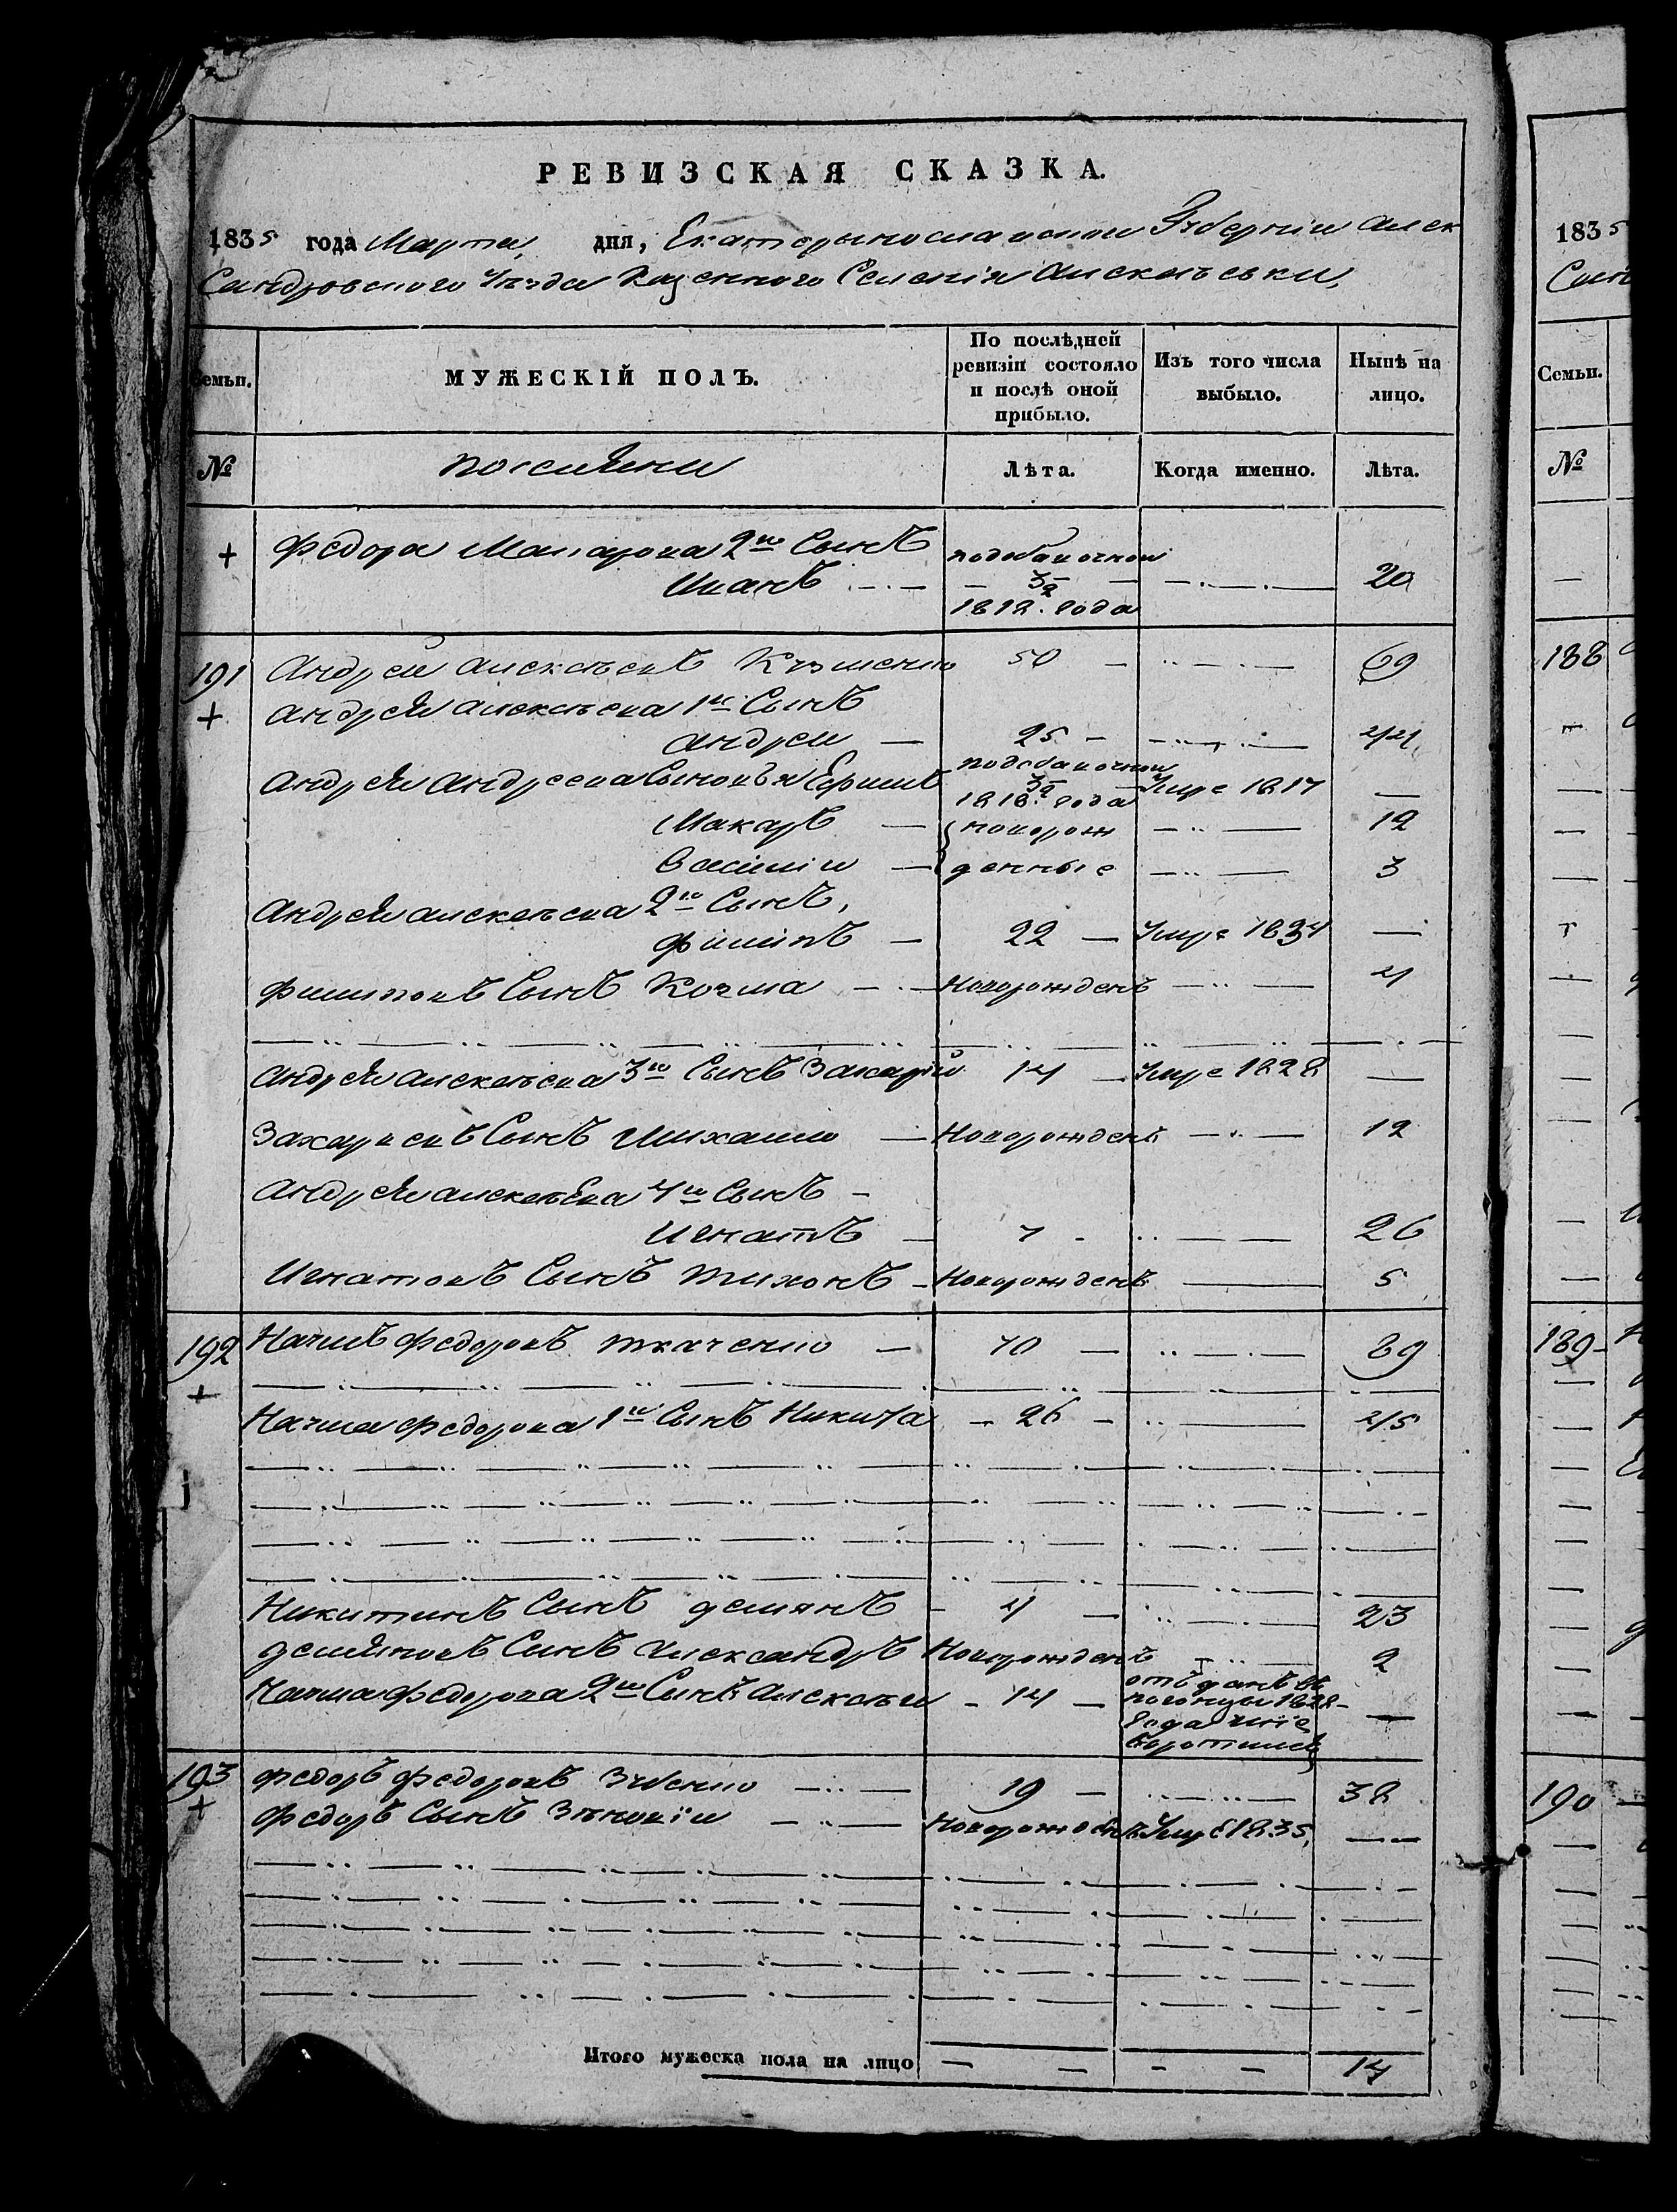 РЕВИЗСКАЯ СКАЗКА.
1835 года Марта, дня, Екатеринославской Губерніи Алек
Сандровского Уѣзда Казенного Селенія Алексѣевки,
Семьи.
МУЖЕСКІЙ ПОЛЪ.
По послѣдней ревизіи состояло и послѣ оной прибыло.
Изъ того числа выбыло.
Нынѣ на лицо.
№
поселяни
Лѣта.
Когда именно.
Лѣта.
+ Федора Макарова 2й Сынъ
Иванъ
1812. года
20
191 Андрей Алексѣевъ Кузменко 50 69
+ Андрея Алексѣева 1й Сынъ
Андрей 25 44
Андрея Андреева Сыновья Ефимъ
1818. года Умре 1817
Макаръ новорож 12
Василій денные 3
Андрея Алексѣева 2й Сынъ,
Филипъ 22 Умре 1834
Филиповъ Сынъ Козма Новорожденъ 4
Андрея Алексѣева 3й Сынъ Захарій 14 Умре 1828
Захариевъ Сынъ Михайло Новорожденъ 12
Андрея Алексѣева 4й Сынъ
Игнатъ 7 26
Игнатовъ Сынъ Тихонъ Новорожденъ 5
192 Наумъ Федоровъ Ткаченко 70 89
+
Наума Федорова 1й Сынъ Никита 26 45
Никитинъ Сынъ Демянъ 4 23
Демяновъ Сынъ Александръ Новорожденъ 2
Наума Федорова 2й Сынъ Алексѣй 14
отъданъ въ
погонцы 1828
года
193 Федоръ Федоровъ Зубенко 19 38
+ Федоръ Сынъ Зѣновій Новорожденъ Умре 1835,
Итого мужеска пола на лицо 14
1835
Семьи.
№
188
189
190